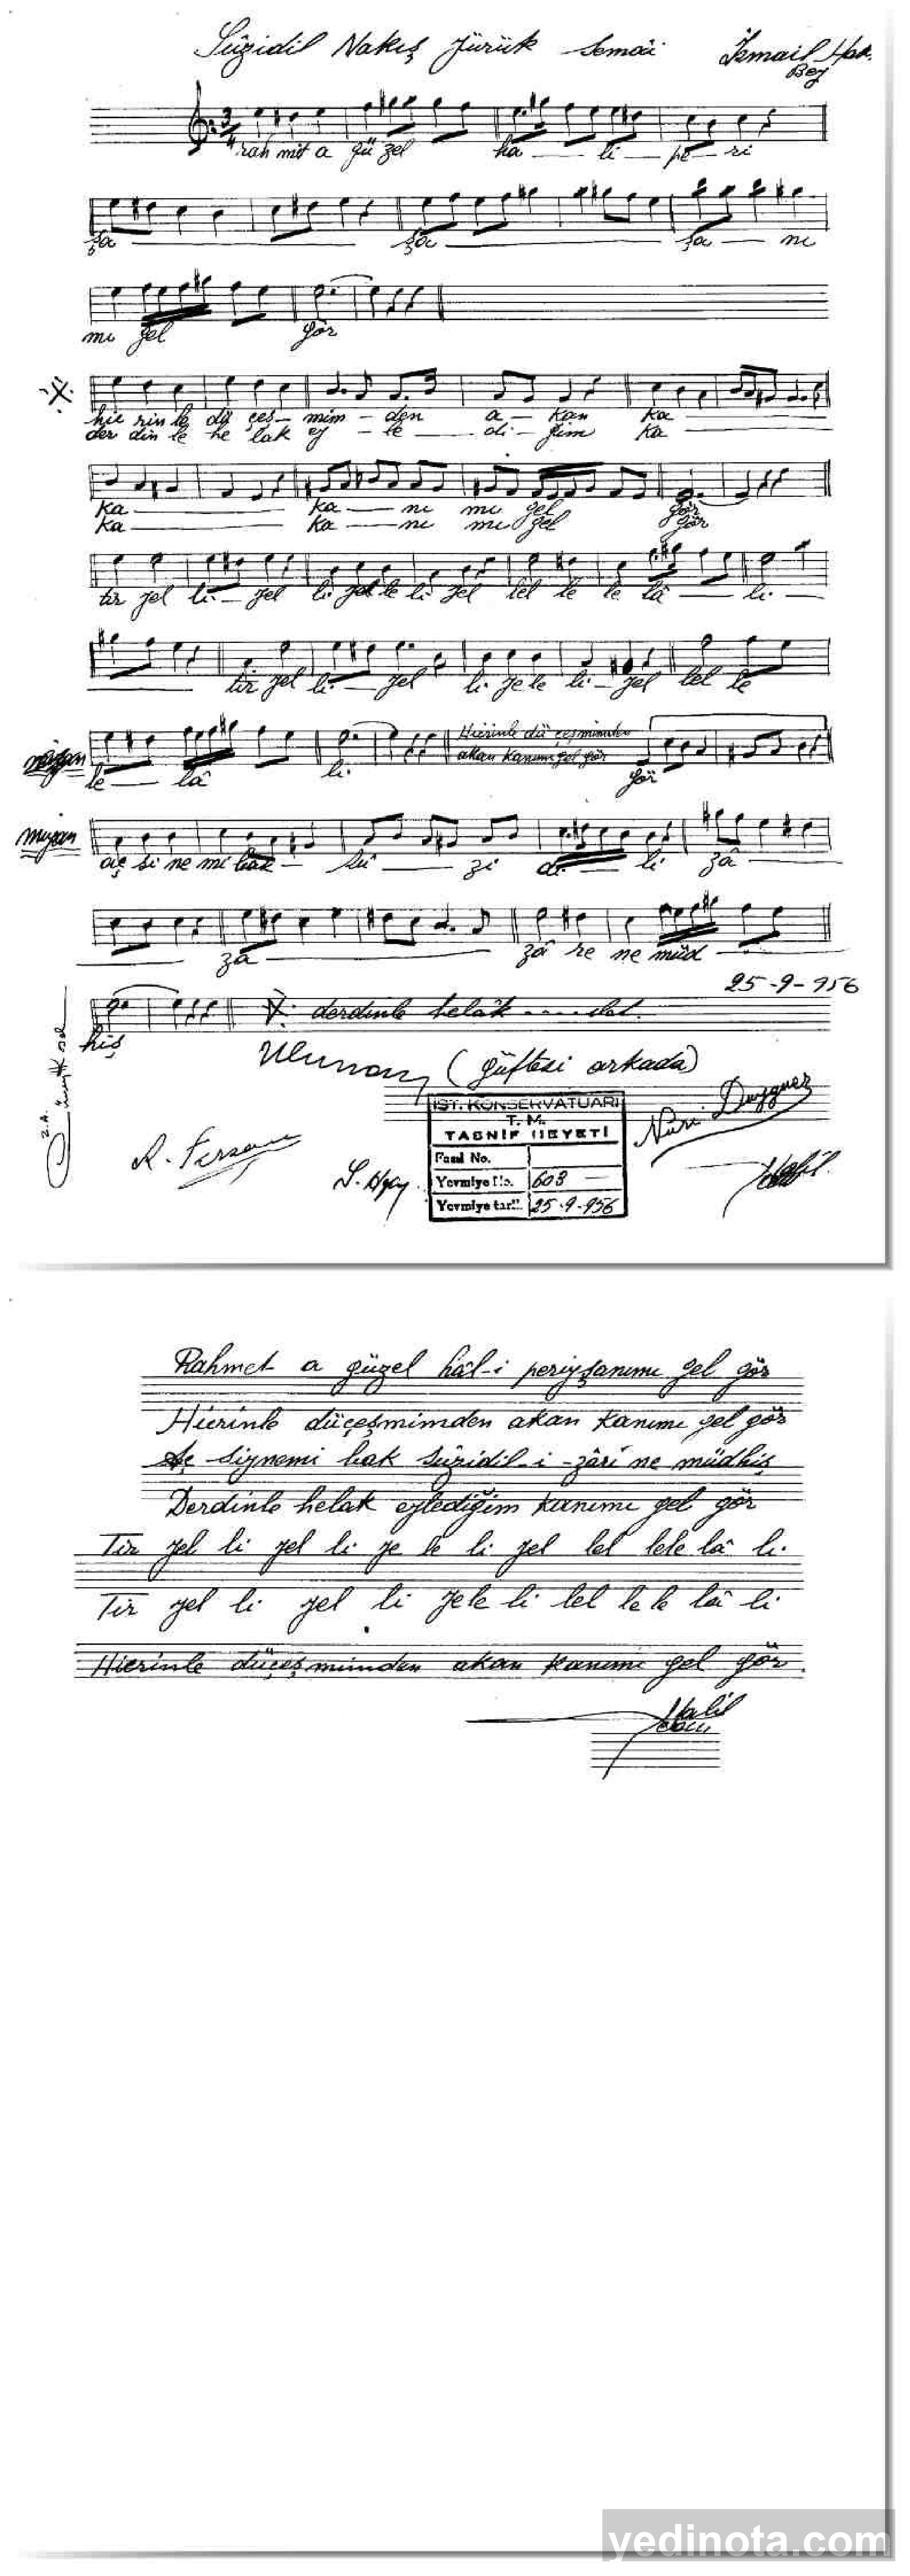 Sûzidil Nakış Yürük Semâi İsmail Hak.
Bey
3/4
rah mit a gü zel ha li pe ri
şa şa şa ni
mi gel gör
hic rin le dü çeş mim den a kan ka
der din le he lak ey le di ğim ka
ka ka ni mi gel gör
ka ka ni mi gel gör
tir yel li yel li yel le li yel lel le le lâ li
tir yel li yel li ye le li yel lel le
Hicrinle dü çeşmimden
akan kanımı gel gör
le lâ li gör
miyan
aç si ne mi bak sû zi di li zâ
zâ zâ re ne müd
25-9-956
hiş derdinle helâk ilat.
(Güftesi arkada)
İST. KONSERVATUARI
T. M.
TASNİF HEYETİ
Fasıl No.
Yevmiye No. 603
Yevmiye tarih. 25.9.956
R. Fersan
Nuri Duyguer
Halil
Rahmet a güzel hâl-i periyşanımı gel gör
Hicrinle düçeşmimden akan kanımı gel gör
Aç siynemi bak sûzidil-i-zârî ne müdhiş
Derdinle helak eylediğim kanımı gel gör
Tir yel li yel li ye le li yel lel lele lâ li.
Tir yel li yel li yele li lel le le lâ li
Hicrinle düçeşmimden akan kanımı gel gör.
Halil
yedinota.com